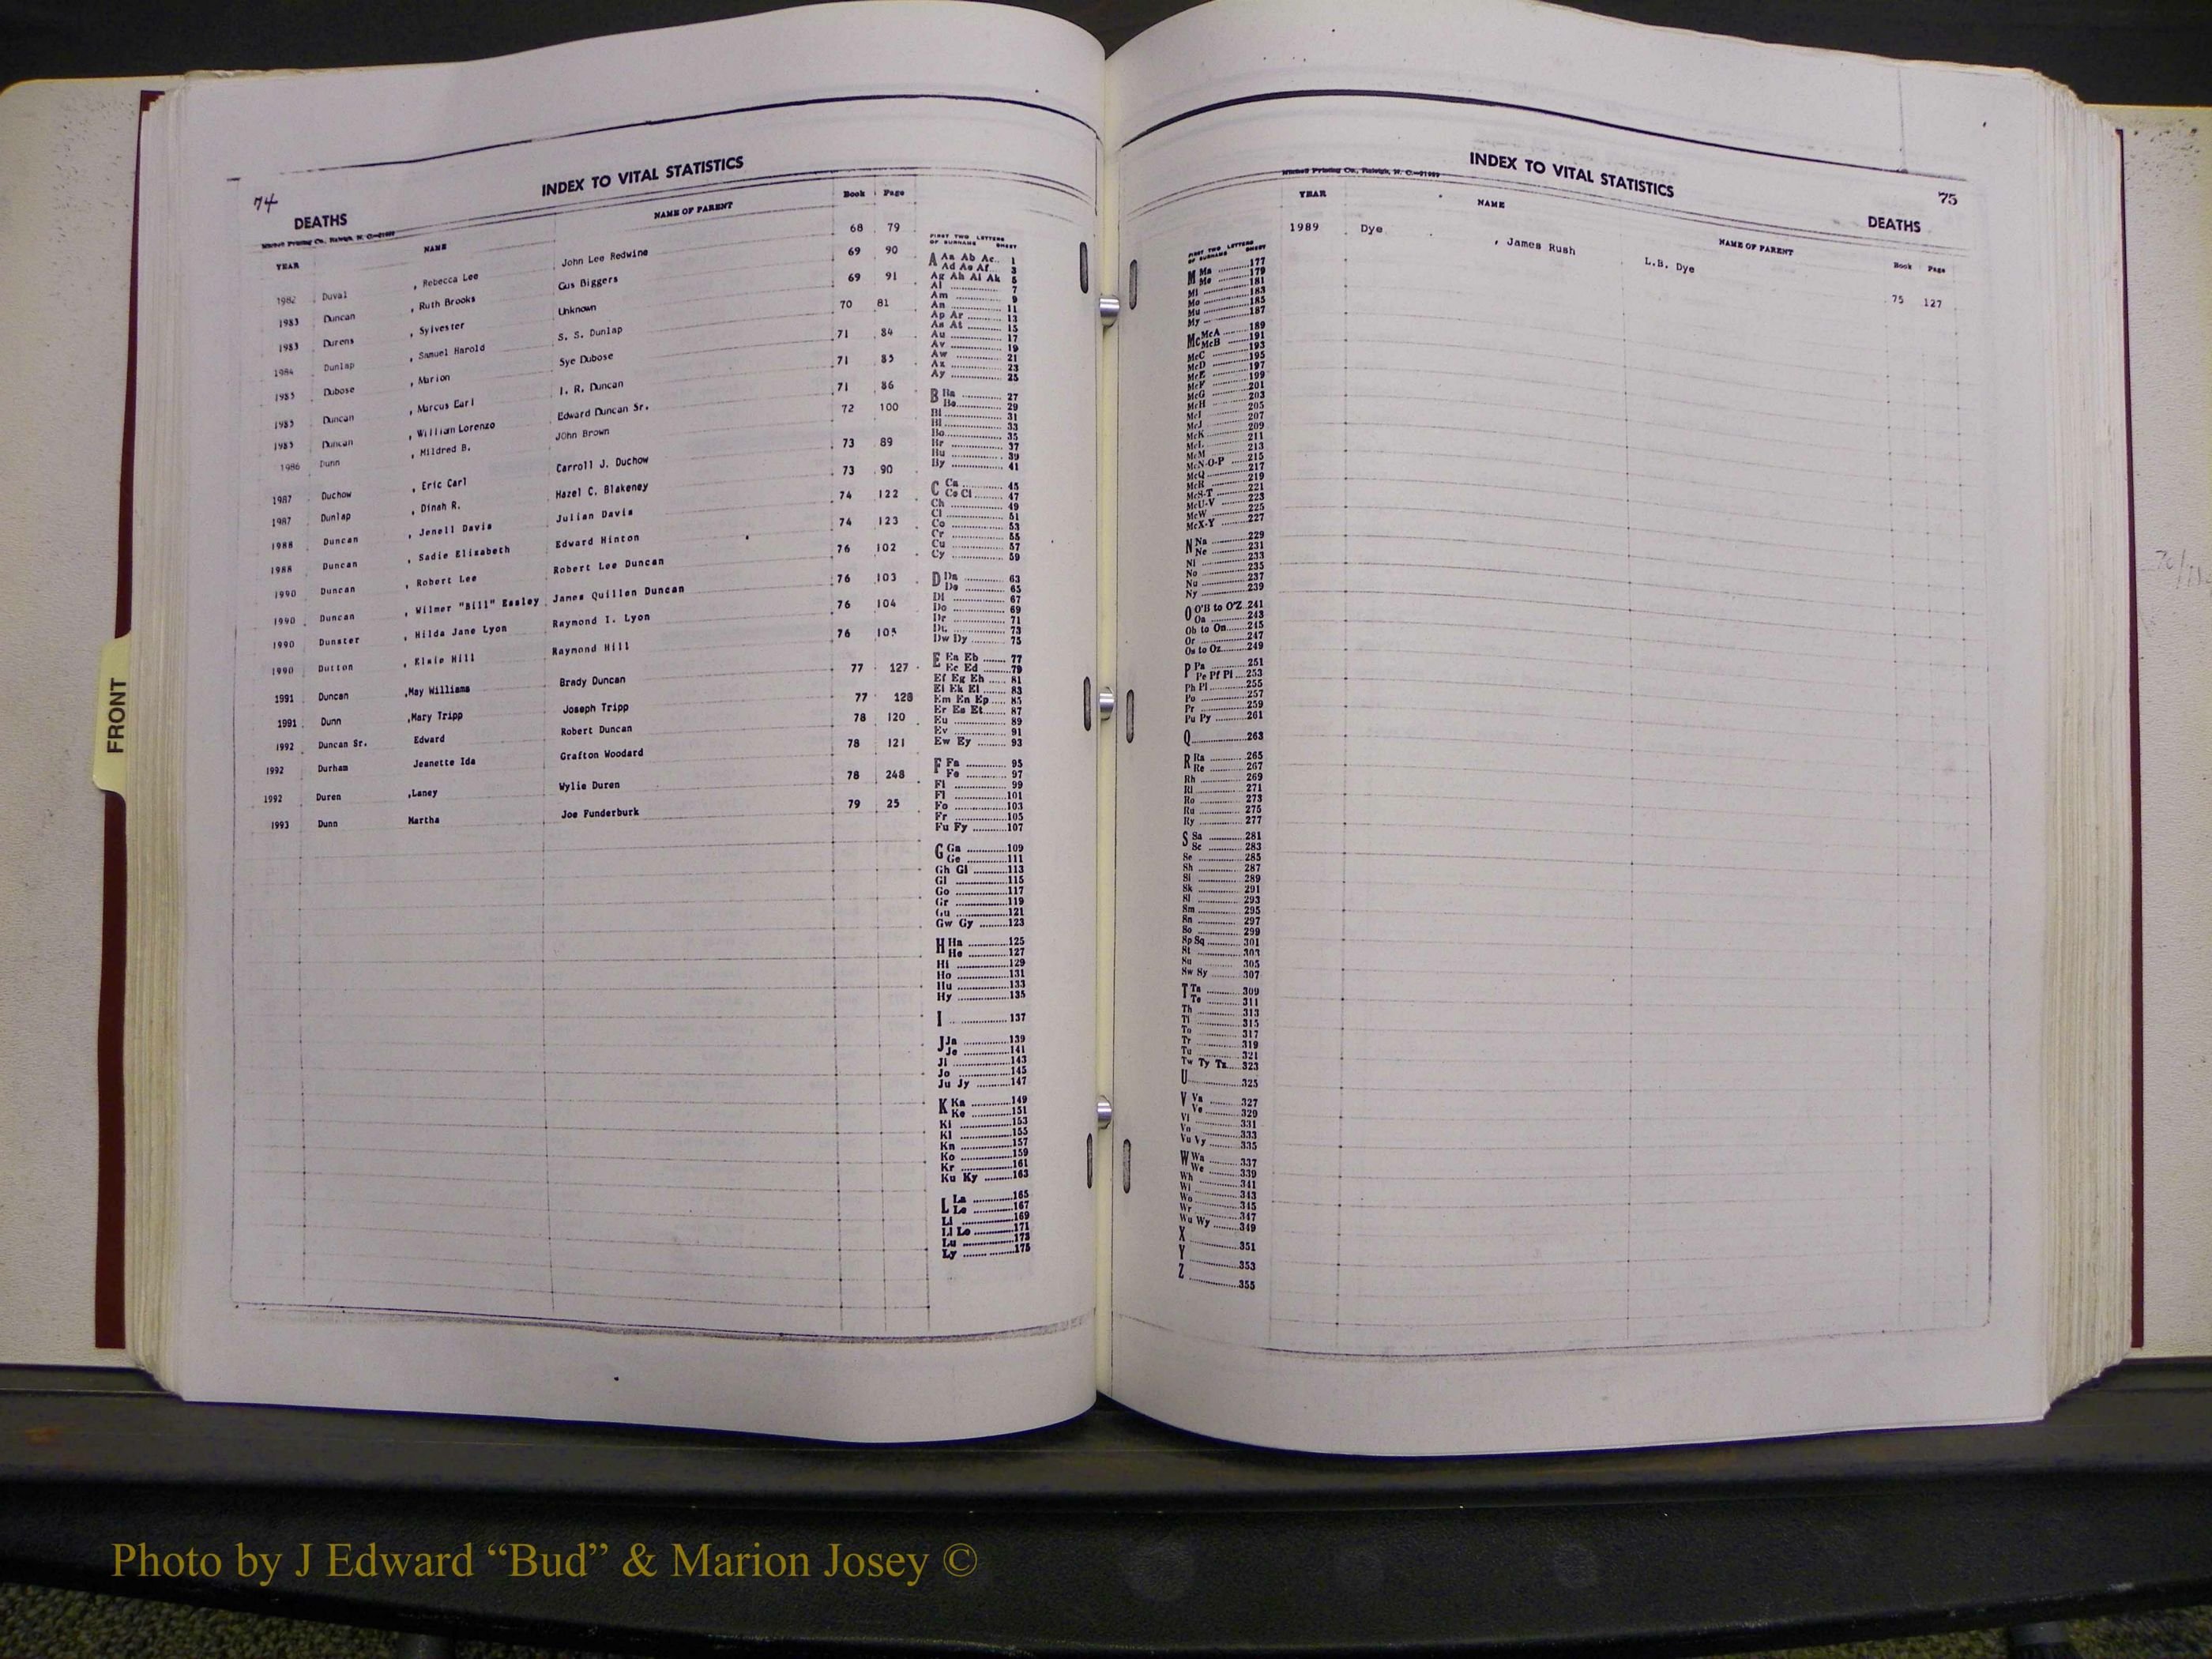 74
INDEX TO VITAL STATISTICS
DEATHS
YEAR NAME NAME OF PARENT Book Page
1982 Duval , Rebecca Lee John Lee Redwine 68 79
1983 Duncan , Ruth Brooks Gus Biggers 69 90
1983 Durens , Sylvester Unknown 69 91
1984 Dunlap , Samuel Harold S. S. Dunlap 70 81
1985 Dubose , Marion Sye Dubose 71 84
1985 Duncan , Marcus Earl I. R. Duncan 71 85
1985 Duncan , William Lorenzo Edward Duncan Sr. 71 86
1986 Dunn , Mildred B. John Brown 72 100
1987 Duchow , Eric Carl Carroll J. Duchow 73 89
1987 Dunlap , Dinah R. Hazel C. Blakeney 73 90
1988 Duncan , Jenell Davis Julian Davis 74 122
1988 Duncan , Sadie Elizabeth Edward Hinton 74 123
1990 Duncan , Robert Lee Robert Lee Duncan 76 102
1990 Duncan , Wilmer "Bill" Easley James Quillen Duncan 76 103
1990 Dunster , Hilda Jane Lyon Raymond I. Lyon 76 104
1990 Dutton , Elsie Hill Raymond Hill 76 105
1991 Duncan ,May Williams Brady Duncan 77 127
1991 Dunn ,Mary Tripp Joseph Tripp 77 128
1992 Duncan Sr. Edward Robert Duncan 78 120
1992 Durham Jeanette Ida Grafton Woodard 78 121
1992 Duren ,Laney Wylie Duren 78 248
1993 Dunn Martha Joe Funderburk 79 25
FIRST TWO LETTERS
OF SURNAME SHEET
A Aa Ab Ac 1
Ad Ae Af 3
Ag Ah Ai Ak 5
Al 7
Am 9
An 11
Ap Ar 13
As At 15
Au 17
Av 19
Aw 21
Ax 23
Ay 25
B Ba 27
Be 29
Bi 31
Bl 33
Bo 35
Br 37
Bu 39
By 41
C Ca 45
Ce Ci 47
Ch 49
Cl 51
Co 53
Cr 55
Cu 57
Cy 59
D Da 63
De 65
Di 67
Do 69
Dr 71
Du 73
Dw Dy 75
E Ea Eb 77
Ec Ed 79
Ef Eg Eh 81
Ei Ek El 83
Em En Ep 85
Er Es Et 87
Eu 89
Ev 91
Ew Ey 93
F Fa 95
Fe 97
Fi 99
Fl 101
Fo 103
Fr 105
Fu Fy 107
G Ga 109
Ge 111
Gh Gi 113
Gl 115
Go 117
Gr 119
Gu 121
Gw Gy 123
H Ha 125
He 127
Hi 129
Ho 131
Hu 133
Hy 135
I 137
J Ja 139
Je 141
Ji 143
Jo 145
Ju Jy 147
K Ka 149
Ke 151
Ki 153
Kl 155
Kn 157
Ko 159
Kr 161
Ku Ky 163
L La 165
Le 167
Li 169
Ll Lo 171
Lu 173
Ly 175
FRONT
Mitchell Printing Co., Raleigh, N. C.
INDEX TO VITAL STATISTICS
75
DEATHS
YEAR NAME NAME OF PARENT Book Page
1989 Dye , James Rush L.B. Dye 75 127
FIRST TWO LETTERS
OF SURNAME SHEET
M Ma 177
Me 179
Mi 181
Mo 183
Mu 185
My 187
Mc McA 189
McB 191
McC 193
McD 195
McE 197
McF 199
McG 201
McH 203
McI 205
McJ 207
McK 209
McL 211
McM 213
McN-O-P 215
McQ 217
McR 219
McS-T 221
McU-V 223
McW 225
McX-Y 227
N Na 229
Ne 231
Ni 233
No 235
Nu 237
Ny 239
O O'B to O'Z 241
Oa 243
Ob to On 245
Or 247
Os to Oz 249
P Pa 251
Pe Pf Pi 253
Ph Pl 255
Po 257
Pr 259
Pu Py 261
Q 263
R Ra 265
Re 267
Rh 269
Ri 271
Ro 273
Ru 275
Ry 277
S Sa 281
Sc 283
Se 285
Sh 287
Si 289
Sk 291
Sl 293
Sm 295
Sn 297
So 299
Sp Sq 301
St 303
Su 305
Sw Sy 307
T Ta 309
Te 311
Th 313
Ti 315
To 317
Tr 319
Tu 321
Tw Ty Tz 323
U 325
V Va 327
Ve 329
Vi 331
Vo 333
Vu Vy 335
W Wa 337
We 339
Wh 341
Wi 343
Wo 345
Wr 347
Wu Wy 349
X 351
Y 353
Z 355
Photo by J Edward “Bud” & Marion Josey ©